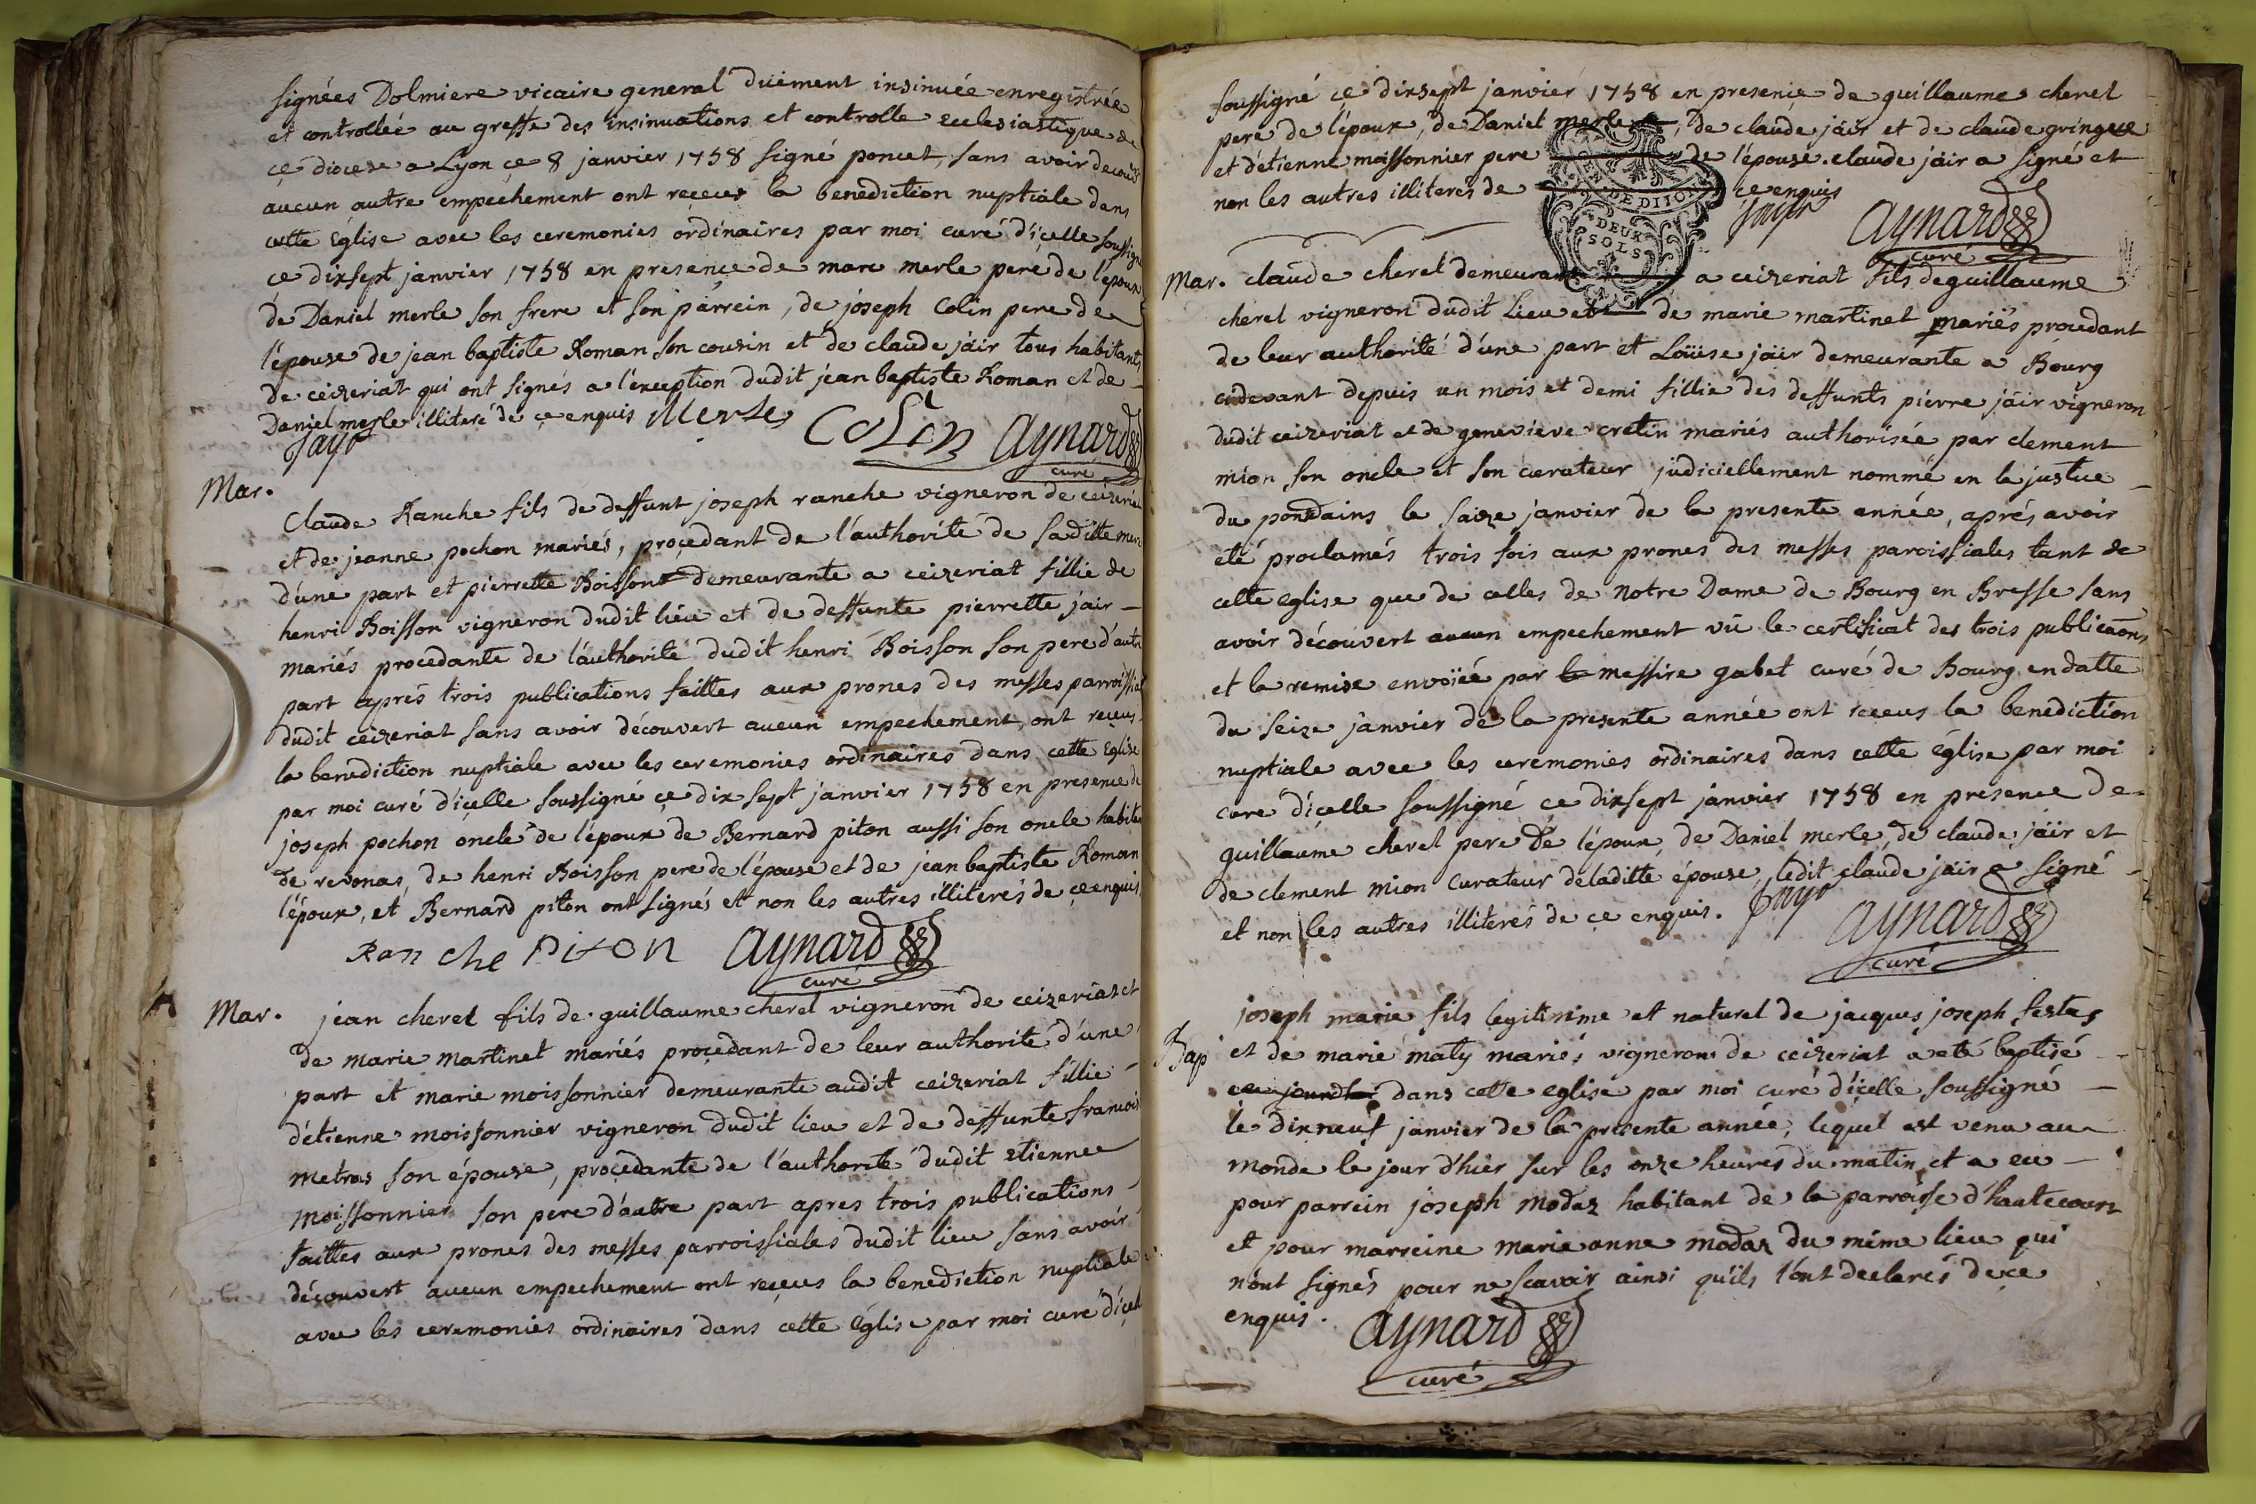 signées Dolmiere vicaire general duëment insinuée enregistrée
et controllée au greffe des insinuations et controlle ecclesiastique de
ce diocese a Lyon ce 8 janvier 1758 signé poncet, sans avoir decouv
aucun autre empechement ont receues la benediction nuptiale dans
cette église avec les ceremonies ordinaires par moi curé d'icelle soussigné
ce dixsept janvier 1758 en presence de marc merle pere de l'epoux
de Daniel merle son frere et son parrein, de joseph Colin pere de
l'épouse de jean baptiste Roman son cousin et de claude jäir tous habitants
de ceizeriat qui ont signés a l'exception dudit jean baptiste Roman et de
Daniel merle illiteré de ce enquis Merle Colin aynard
Jayr curé
Mar.
Claude Ranche fils de deffunt joseph ranche vigneron de ceizeria
et de jeanne pochon mariés, procedant de l'authorité de sa ditte mere
d'une part et pierrette Boisson demeurante a ceizeriat fillie de
henri Boisson vigneron dudit lieu et de deffunte pierrette jair -
mariés procedante de l'authorité dudit henri Boisson son pere d'autre
part aprés trois publications faittes aux prones des messes parroissial
dudit ceizeriat sans avoir découvert aucun empechement, ont reçeus
la benediction nuptiale avec les ceremonies ordinaires dans cette Eglise
par moi curé d'icelle soussigné ce dix sept janvier 1758 en presence de
joseph pochon oncle de l'époux de Bernard piton aussi son oncle habita
de revonas, de henri Boisson pere de l'épouse et de jean baptiste Roman
l'époux, et Bernard piton ont signés et non les autres illiterés de ce enquis
Ranche Piton aynard
curé
Mar. jean cheret fils de guillaume cheret vigneron de ceizeriat et
de marie martinet mariés procedant de leur authorité d'une
part et marie moissonnier demeurante audit ceizeriat fillie -
d'étienne moissonnier vigneron dudit lieu et de deffunte francois
metras son épouse, procedante de l'authorité dudit etienne
moissonnier son pere d'autre part apres trois publications -
faittes aux prones des messes parroissiales dudit lieu sans avoir
découvert aucun empechement ont reçeus la benediction nuptiale
avec les ceremonies ordinaires dans cette église par moi curé d'icel
soussigné ce dixsept janvier 1758 en presence de guillaume cheret
pere de l'époux, de Daniel merle, de claude jäir et de claude gringue
et d'etienne moissonnier pere de l'épouse. claude jäir a signé et
non les autres illiterés de ce enquis
GEN. DE DIJON
DEUX
SOLS
Jayr aynard
curé
Mar. claude cheret demeurant a ceizeriat fils de guillaume
cheret vigneron dudit lieu et de marie martinet mariés procedant
de leur authorité d'une part et Loüise jäir demeurante a Bourg
cidevant depuis un mois et demi fillie des deffunts pierre jäir vigneron
dudit ceizeriat et de genevieve cretin mariés authorisée par clement
mion son oncle et son curateur judiciellement nommé en la justice -
du pondains le saize janvier de la presente année, aprés avoir
eté proclamés trois fois aux prones des messes paroissiales tant de
cette eglise que de celles de Notre Dame de Bourg en Bresse sans
avoir découvert aucun empechement vû le certificat des trois publicaõns
et la remise envoiée par le messire gabet curé de Bourg en datte
du seize janvier de la presente année ont receus la benediction
nuptiale avec les ceremonies ordinaires dans cette église par moi
curé d'icelle soussigné ce dixsept janvier 1758 en presence de
guillaume cheret pere de l'époux, de Daniel merle, de claude jäir et
de clement mion Curateur de laditte épouse, ledit claude jäir a signé
et non les autres illiterés de ce enquis. Jayr aynard
curé
joseph marie fils legitimime et naturel de jacques joseph festas
Bap et de marie maty mariés vignerons de ceizeriat a eté baptisé
ce jourdhui dans cette eglise par moi curé d'icelle soussigné -
le dixneuf janvier de la presente année, lequel est venu au
monde le jour d'hier sur les onze heures du matin et a eu -
pour parrein joseph modaz habitant de la parroisse d'hautecourt
et pour marreine marie anne modaz du même lieu qui
n'ont signés pour ne scavoir ainsi qu'ils l'ont declarés de ce
enquis. aynard
curé